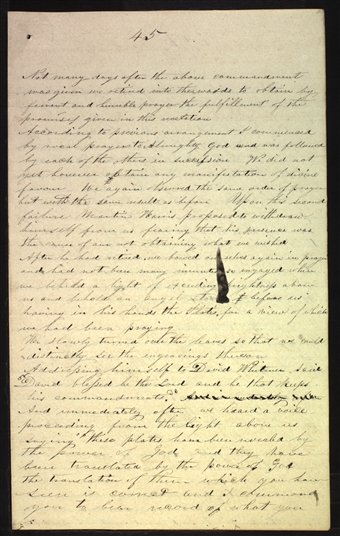 45
Not many days after the above commandment
was given we retired into the woods to obtain by
fervant and humble prayer the fulfillment of the
promises given in this revelation
According to previous arrangement I commenced
by vocal prayer to Almighty God and was followed
by each of the others in succession We did not
yet however obtain any manifestation of divine
favour We again observed the same order of prayer
but with the same result as before Upon this second
failure Martin Harris proposed to withdraw
himself from us fearing that his presence was
the cause of our not obtaining what we wished
After he had retired, we bowed ourselves again in prayer
and had not been many minutes so engaged when
we beheld a light of exceeding brightness above
us and behold an angel stood before us
having in his hands the Plates, for a view of which
we had been praying
He slowly turned over the leaves so that we could
distinctly see the engravings thereon
Addressing himself to David Whitmer, said
"David blessed be the Lord and he that keeps
his commandments,"
And immediately after, we heard a voice
proceeding from the light above us
saying "these plates have been revealed by
the power of God, and they have
been translated by the power of God
the translation of them which you have
seen is correct and I command
you to bear record of what you